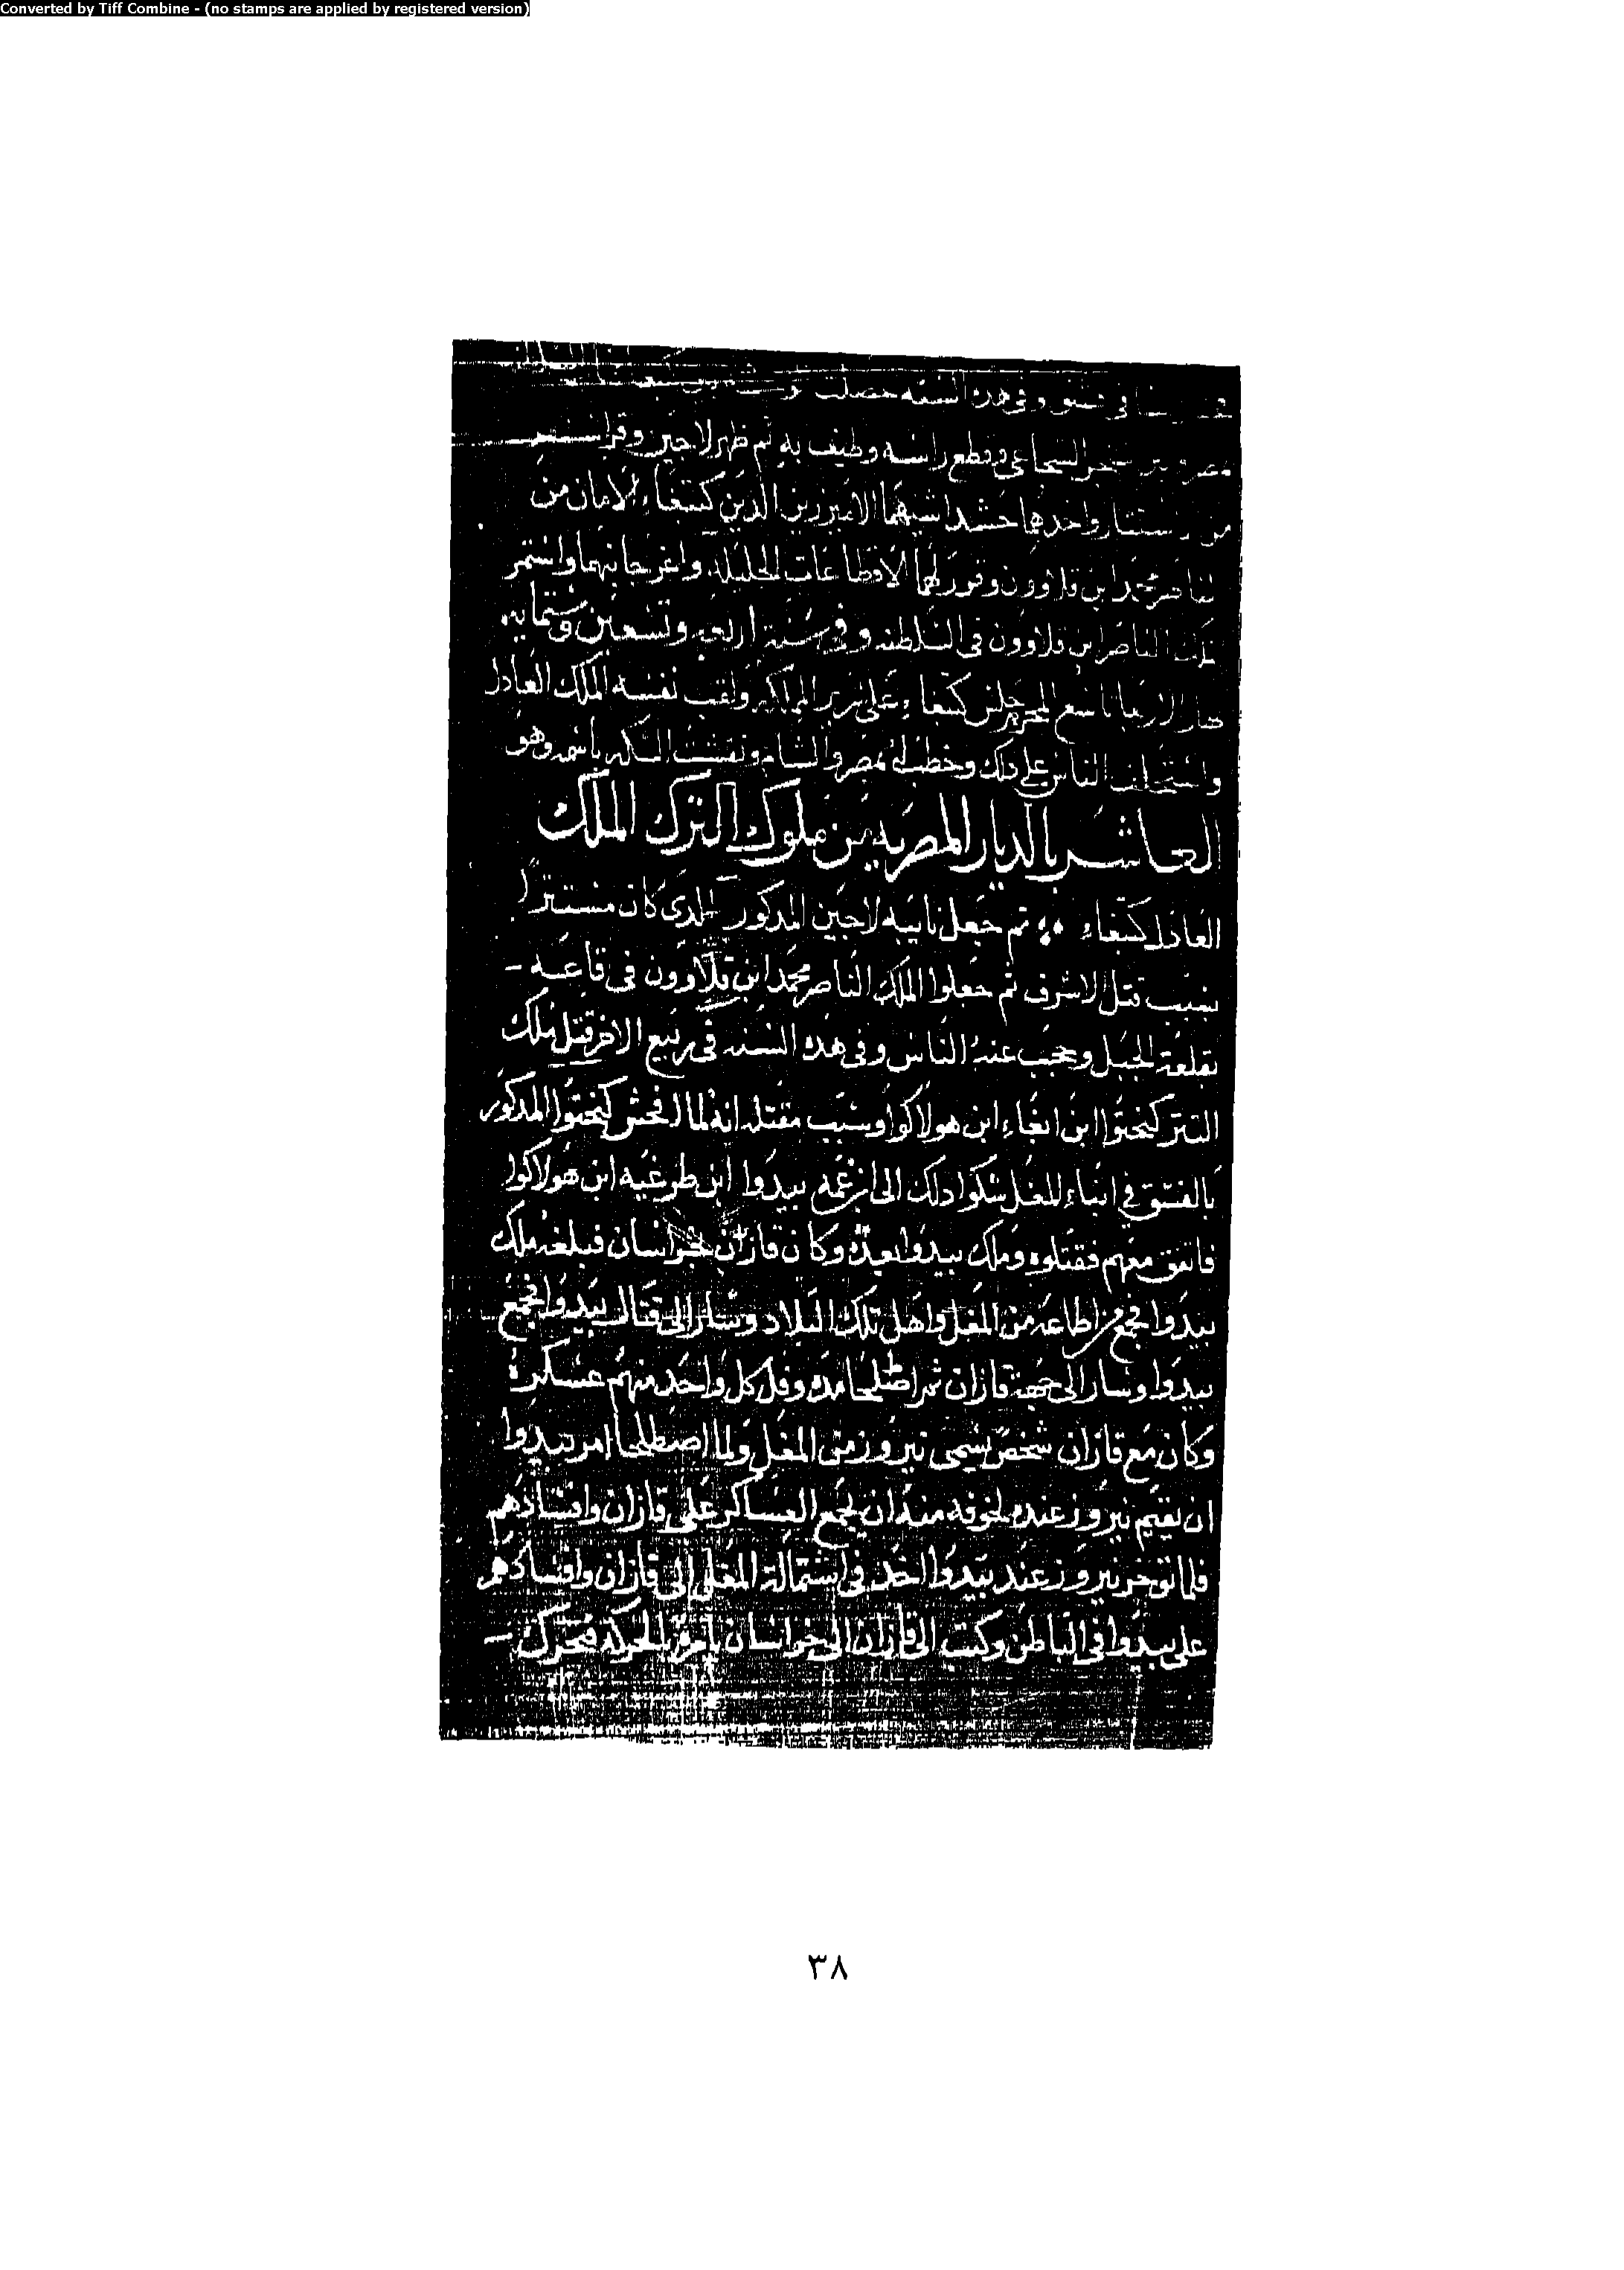 Converted by Tiff Combine - (no stamps are applied by registered version)
في وفي هذه السنة حصلت
الشجاعي وقطع راسه وطيف به ثم ظهر لاجين وقرا سنقر
من الامير زين الدين كتبغاء الامان من
لناصر محمد ابن قلاوون وقرر لهما الاقطاعات الجليله واعز جانبهما واستمر
الناصر ابن قلاوون في السلطنه وفي سنة اربعه وتسعين وستمايه
نهار الاربعا تاسع المحرم جلس كتبغاء على سرير المملكه ولقب نفسه الملك العادل
واستحلف الناس على ذلك وخطب له بمصر والشام ونقشت السكه باسمه وهو
العاشر بالديار المصريه من ملوك الترك الملك
العادل كتبغاء ثم جعل نايبه لاجين المذكور الذي كان مستترا
بسبب قتل الاشرف ثم جعلوا الملك الناصر محمد ابن قلاوون في قاعه
بقلعة الجبل وحجب عنه الناس وفي هذه السنه في ربيع الاخر قتل ملك
التتر كيختوا ابن ابغاء ابن هولاكوا وسبب مقتله انه لما افحش كيختوا المذكور
بالفسق في ابناء المغل شكوا ذلك الى ابن عمه بيدوا ابن طرغيه ابن هولاكوا
فاتفق معهم فقتلوه وملك بيدوا بعده وكان قازان بخراسان فبلغه ملك
بيدوا فجمع من اطاعه من المغل واهل تلك البلاد وسار الى قتال بيدوا فجمع
بيدوا وسار الى جهة قازان ثم اصطلحا مده وفل كل واحد منهم عسكره
وكان مع قازان شخص يسمى نيروز من المغل ولما اصطلحا امر بيدوا
ان يقيم نيروز عنده لخوفه منه ان يجمع العساكر على قازان وافسادهم
فلما توخر نيروز عند بيدوا اخذ في استمالة المغل الى قازان وافسادهم
على بيدوا في الباطن وكتب الى قازان الى خراسان يامره بالحركه فتحرك
٣٨